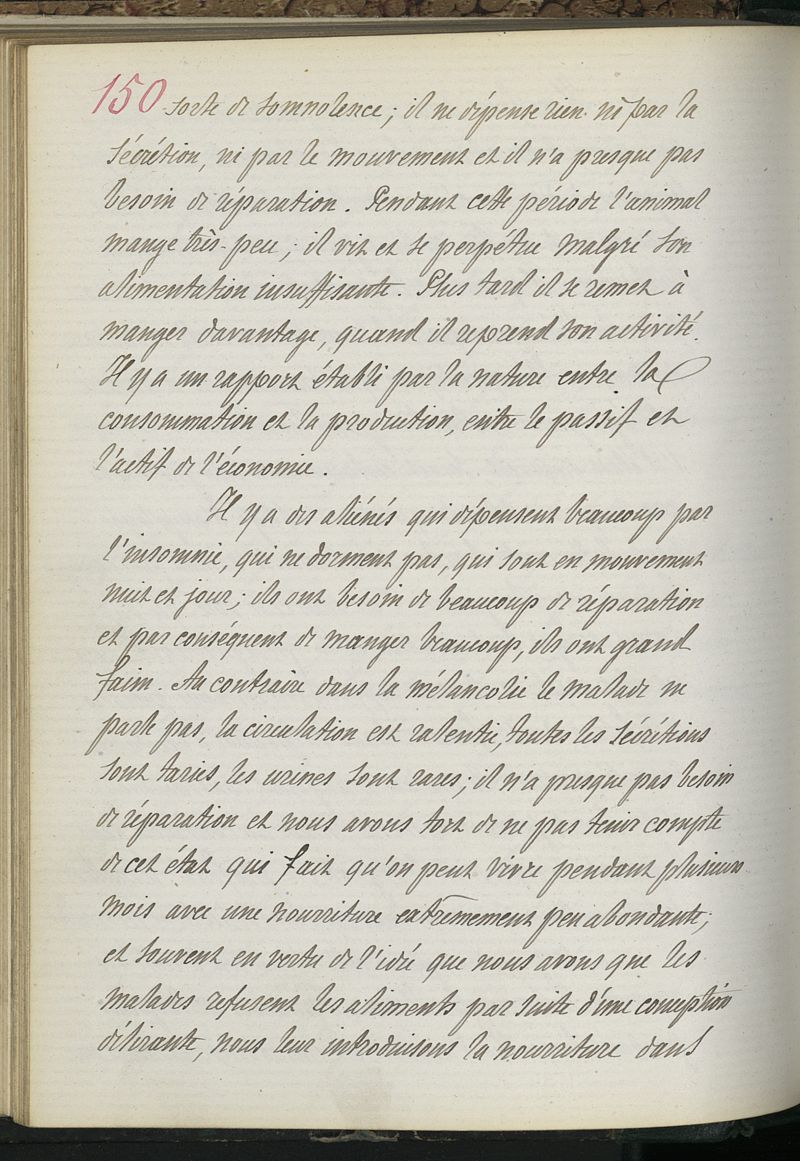 150 sorte de somnolence ; il ne dépense rien ni par la
sécrétion, ni par le mouvement et il n'a presque pas
besoin de réparation. Pendant cette période l'animal
mange très-peu ; il vit et se perpétue malgré son
alimentation insuffisante. Plus tard il se remet à
manger davantage, quand il reprend son activité.
Il y a un rapport établi par la nature entre la
consommation et la production, entre le passif et
l'actif de l'économie.
Il y a des aliénés qui dépensent beaucoup par
l'insomnie, qui ne dorment pas, qui sont en mouvement
nuit et jour ; ils ont besoin de beaucoup de réparation
et par conséquent de manger beaucoup, ils ont grand
faim. Au contraire dans la mélancolie le malade ne
parle pas, la circulation est ralentie, toutes les sécrétions
sont taries, les urines sont rares ; il n'a presque pas besoin
de réparation et nous avons tort de ne pas tenir compte
de cet état qui fait qu'on peut vivre pendant plusieurs
mois avec une nourriture extrêmement peu abondante ;
et souvent en vertu de l'idée que nous avons que les
malades refusent les aliments par suite d'une conception
délirante, nous leur introduisons la nourriture dans